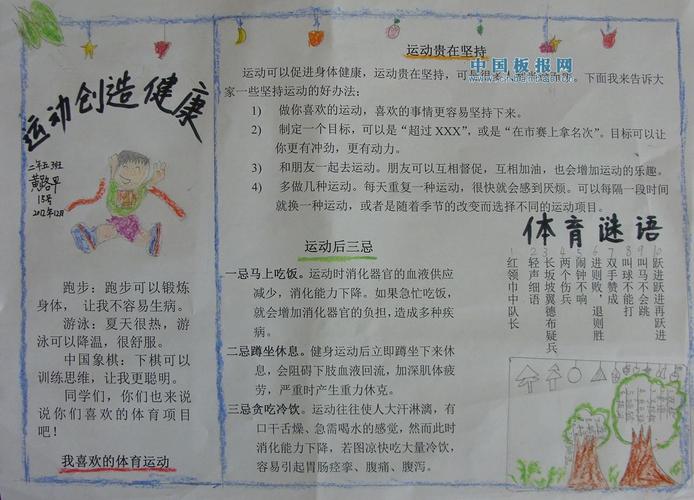 运动创造健康
二年五班
黄路早
15号
2012年12月
跑步：跑步可以锻炼
身体， 让我不容易生病。
游泳：夏天很热，游
泳可以降温，很舒服。
中国象棋：下棋可以
训练思维，让我更聪明。
同学们，你们也来说
说你们喜欢的体育项目
吧！
我喜欢的体育运动
运动贵在坚持
中国板报网
运动可以促进身体健康，运动贵在坚持，可是很多人 下面我来告诉大
家一些坚持运动的好办法：
1) 做你喜欢的运动，喜欢的事情更容易坚持下来。
2) 制定一个目标，可以是“超过 XXX”，或是“在市赛上拿名次”。目标可以让
你更有冲劲，更有动力。
3) 和朋友一起去运动。朋友可以互相督促，互相加油，也会增加运动的乐趣。
4) 多做几种运动。每天重复一种运动，很快就会感到厌烦。可以每隔一段时间
就换一种运动，或者是随着季节的改变而选择不同的运动项目。
运动后三忌
一忌马上吃饭。运动时消化器官的血液供应
减少，消化能力下降。如果急忙吃饭，
就会增加消化器官的负担，造成多种疾
病。
二忌蹲坐休息。健身运动后立即蹲坐下来休
息，会阻碍下肢血液回流，加深肌体疲
劳，严重时产生重力休克。
三忌贪吃冷饮。运动往往使人大汗淋漓，有
口干舌燥、急需喝水的感觉，然而此时
消化能力下降，若图凉快吃大量冷饮，
容易引起胃肠痉挛、腹痛、腹泻。
体育谜语
1 红领巾中队长
2 轻声细语
3 长坂坡翼德布疑兵
4 两个伤兵
5 闹钟不响
6 进则败，退则胜
7 双手赞成
8 叫球不能打
9 叫马不会跳
10 跃进跃进再跃进